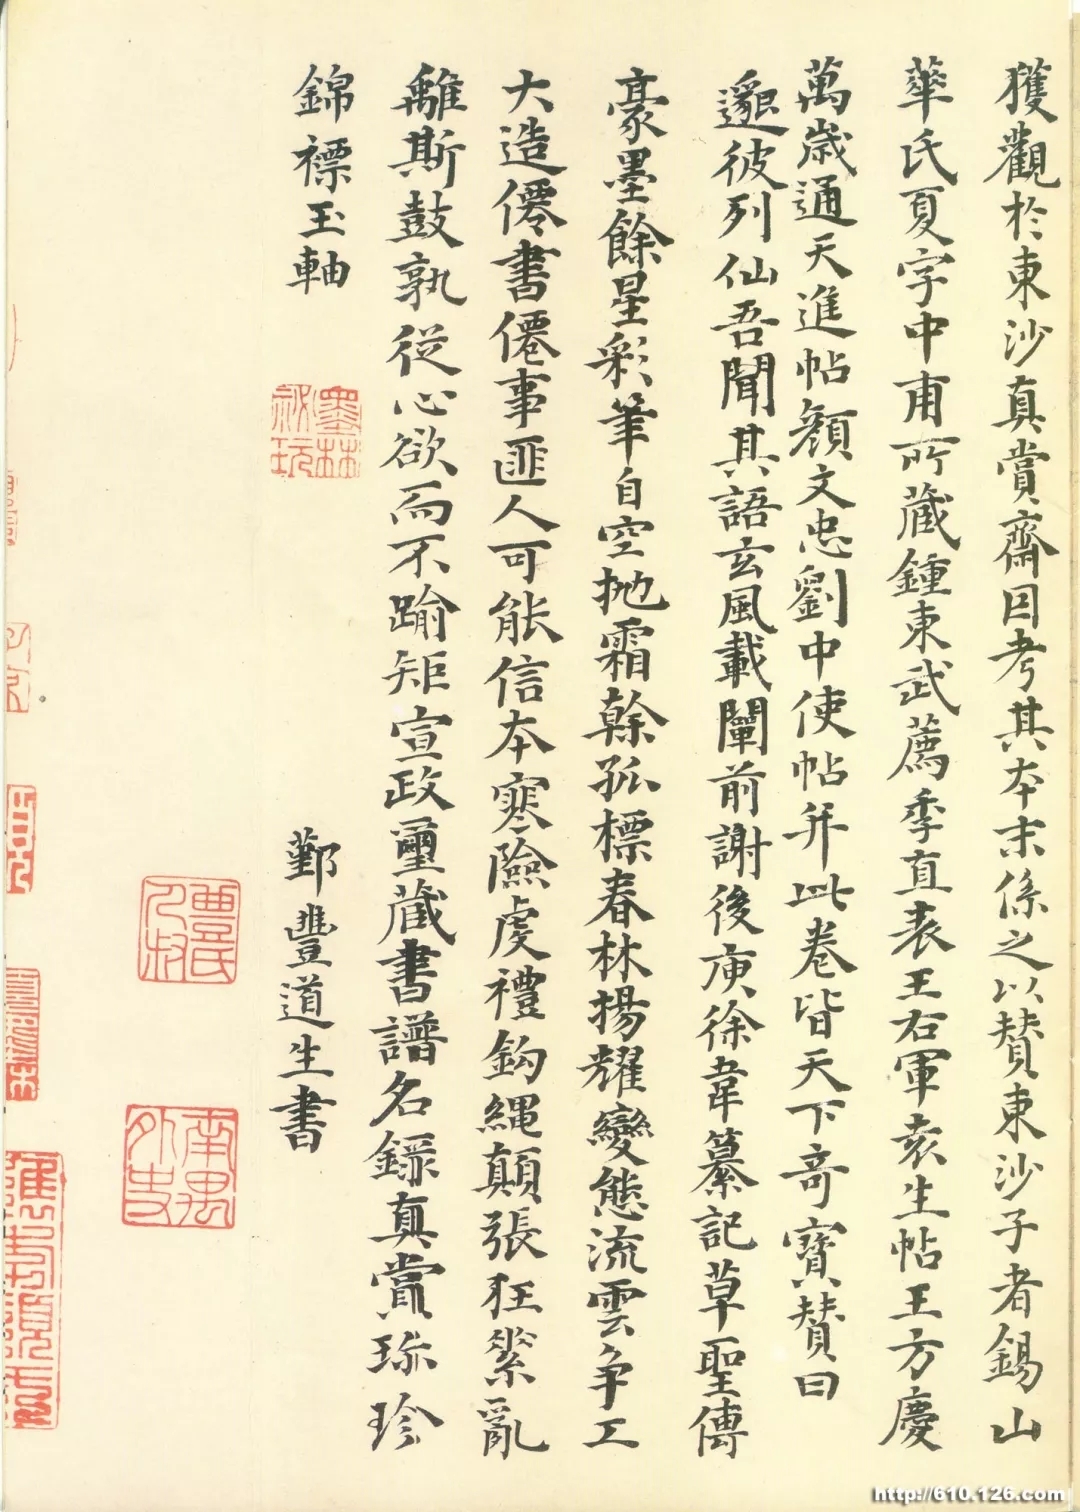 獲觀於東沙真賞齋因考其本末係之以贊東沙子者錫山
華氏夏字中甫所藏鍾東武薦季直表王右軍袁生帖王方慶
萬歲通天進帖顏文忠劉中使帖并此卷皆天下奇寶贊曰
邈彼列仙吾聞其語玄風載闡前謝後庾徐韋纂記草聖傳
豪墨餘星彩筆自空拋霜榦孤標春林揚耀變態流雲爭工
大造僊書僊事匪人可能信本寒險虔禮鉤繩顛張狂縈亂
離斯鼓孰從心欲而不踰矩宣政璽藏書譜名錄真賞珎珍
錦褾玉軸
鄞豐道生書
墨林祕玩
豐氏人叔
南禺外史
http://610.126.com